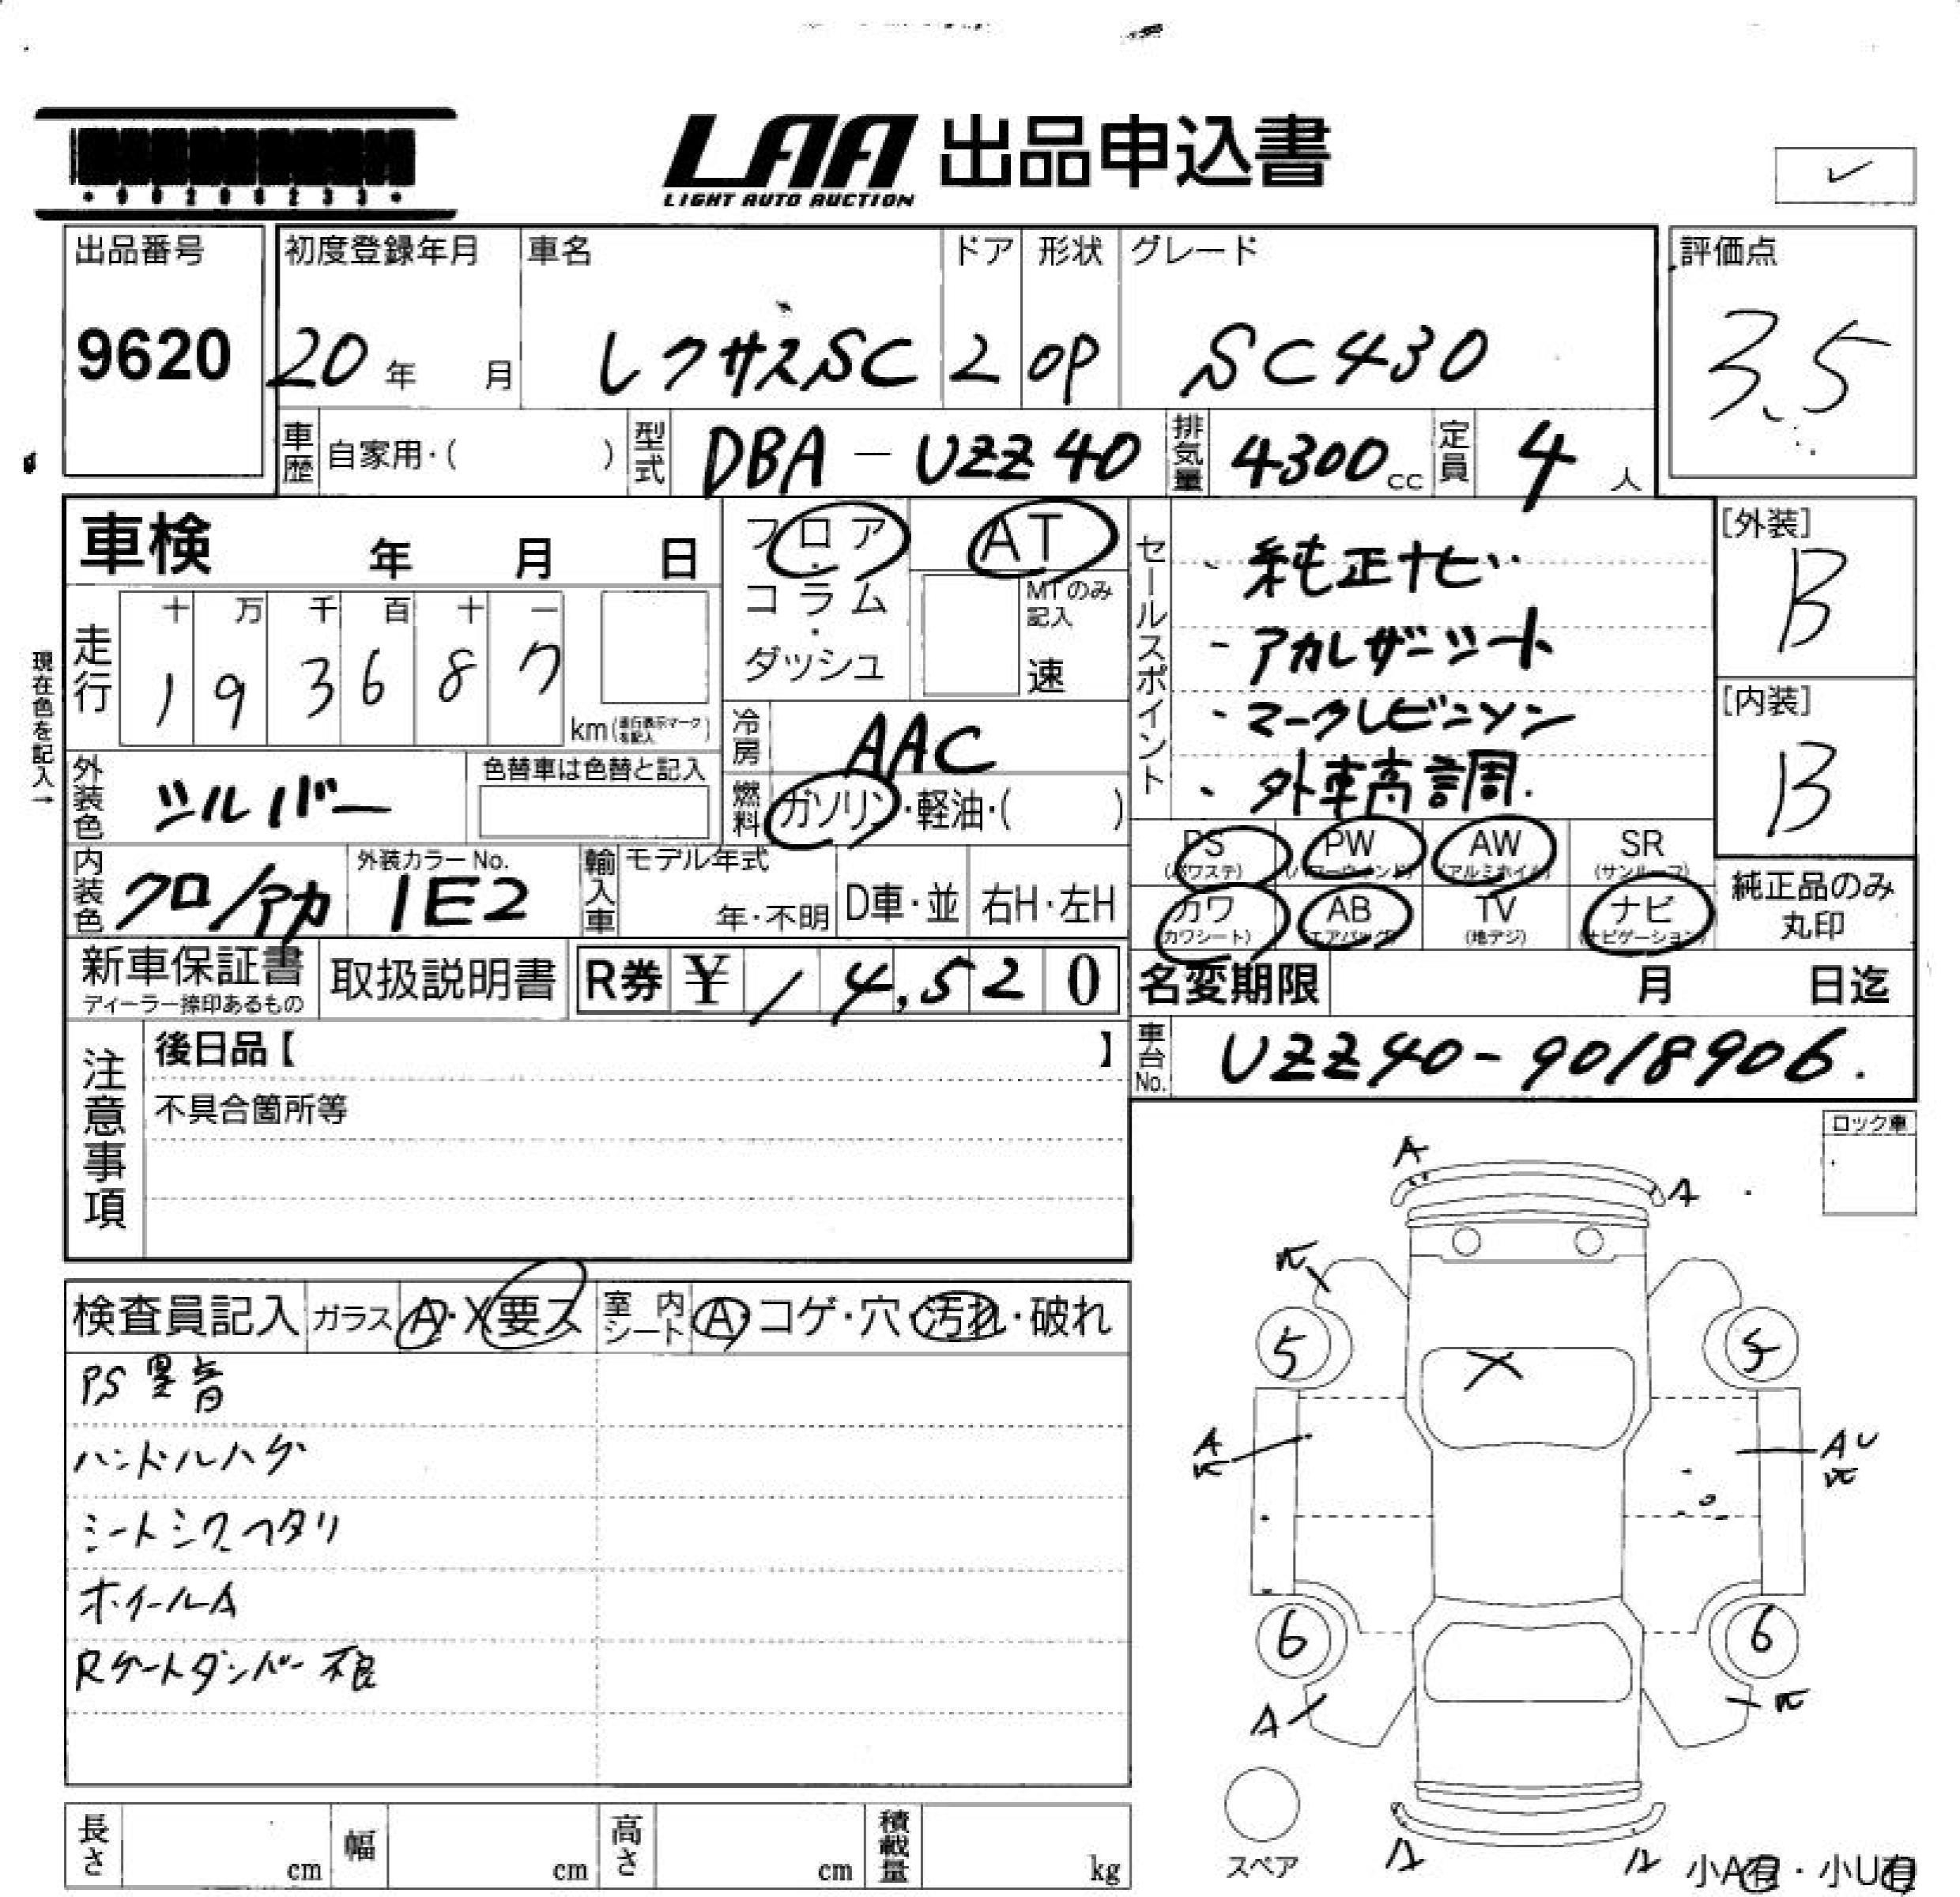 LAA 出品申込書
LIGHT AUTO AUCTION
出品番号
9620
初度登録年月
20年 月
車名
レクサスSC
ドア
2
形状
OP
グレード
SC430
評価点
3.5
車歴
自家用・( )
型式
DBA-UZZ40
排気量
4300cc
定員
4人
車検 年 月 日
フロア・コラム・ダッシュ
AT
MTのみ記入
速
セールスポイント
・純正ナビ
・アカレザーシート
・マークレビンソン
・外車高調.
[外装]
B
[内装]
B
現在色を記入→
走行
十 万 千 百 十 一
1 9 3 6 8 7
km
冷房
AAC
外装色
シルバー
色替車は色替と記入
燃料
ガソリン・軽油・( )
内装色
クロ/アカ
外装カラーNo.
1E2
輸入車
モデル年式
年・不明
D車・並
右H・左H
PS
(パワステ)
PW
(パワーウィンド)
AW
(アルミホイル)
SR
(サンルーフ)
カワ
(カワシート)
AB
(エアバッグ)
TV
(地デジ)
ナビ
(ナビゲーション)
純正品のみ
丸印
新車保証書
ディーラー捺印あるもの
取扱説明書
R券 ¥ 14,520
名変期限 月 日迄
注意事項
後日品【 】
不具合箇所等
車台No.
UZZ40-9018906.
ロック車
検査員記入
ガラス A・X 要ス
室内シート A・コゲ・穴・汚れ・破れ
PS異音
ハンドルハゲ
シートシワヘタリ
ホイールA
Rゲートダンパー不良
A
A
5
5
X
A
AU
6
6
A
スペア
小A有・小U有
長さ cm
幅 cm
高さ cm
積載量 kg